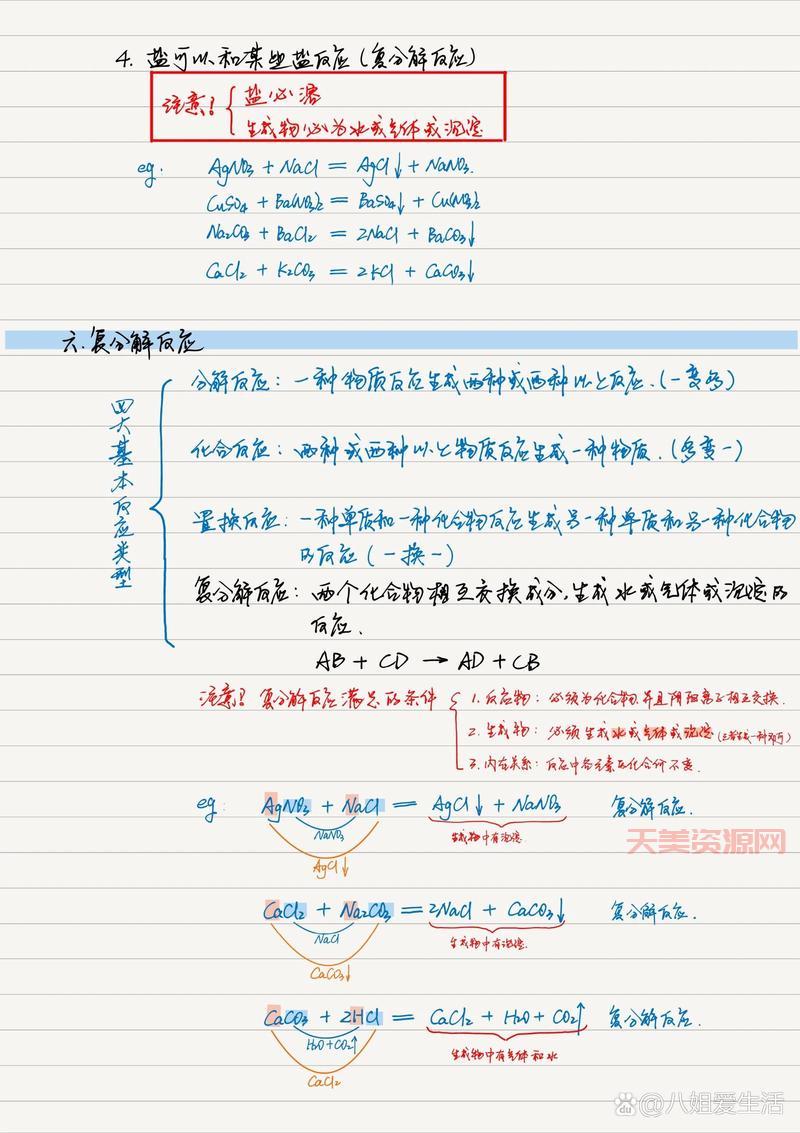 4. 盐可以和某些盐反应(复分解反应)
注意! 盐必溶
生成物必为水或气体或沉淀
eg. AgNO₃ + NaCl = AgCl↓ + NaNO₃.
CuSO₄ + Ba(NO₃)₂ = BaSO₄↓ + Cu(NO₃)₂
Na₂CO₃ + BaCl₂ = 2NaCl + BaCO₃↓
CaCl₂ + K₂CO₃ = 2KCl + CaCO₃↓
六.复分解反应
四大基本反应类型
分解反应: 一种物质反应生成两种或两种以上反应.(一变多)
化合反应: 两种或两种以上物质反应生成一种物质.(多变一)
置换反应: 一种单质和一种化合物反应生成另一种单质和另一种化合物
的反应(一换一)
复分解反应: 两个化合物相互交换成分,生成水或气体或沉淀的
反应.
AB + CD → AD + CB
注意! 复分解反应满足的条件
1.反应物: 必须为化合物,并且阴阳离子相互交换.
2.生成物: 必须生成水或气体或沉淀(三者生成一种即可)
3.内在关系: 反应中各元素的化合价不变.
eg: AgNO₃ + NaCl = AgCl↓ + NaNO₃ 复分解反应.
NaNO₃
生成物中有沉淀.
AgCl↓
天美资源网
CaCl₂ + Na₂CO₃ = 2NaCl + CaCO₃↓ 复分解反应.
NaCl
生成物中有沉淀.
CaCO₃↓
CaCO₃ + 2HCl = CaCl₂ + H₂O + CO₂↑ 复分解反应.
H₂O+CO₂↑
生成物中有气体和水
CaCl₂
Bai du @八姐爱生活